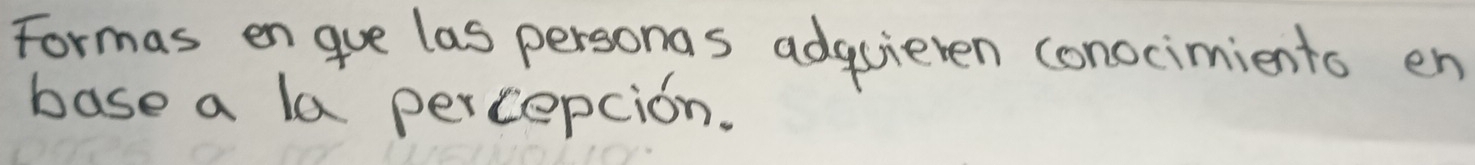 Formas en que las personas adquieren conocimiento en
base a la percepción.